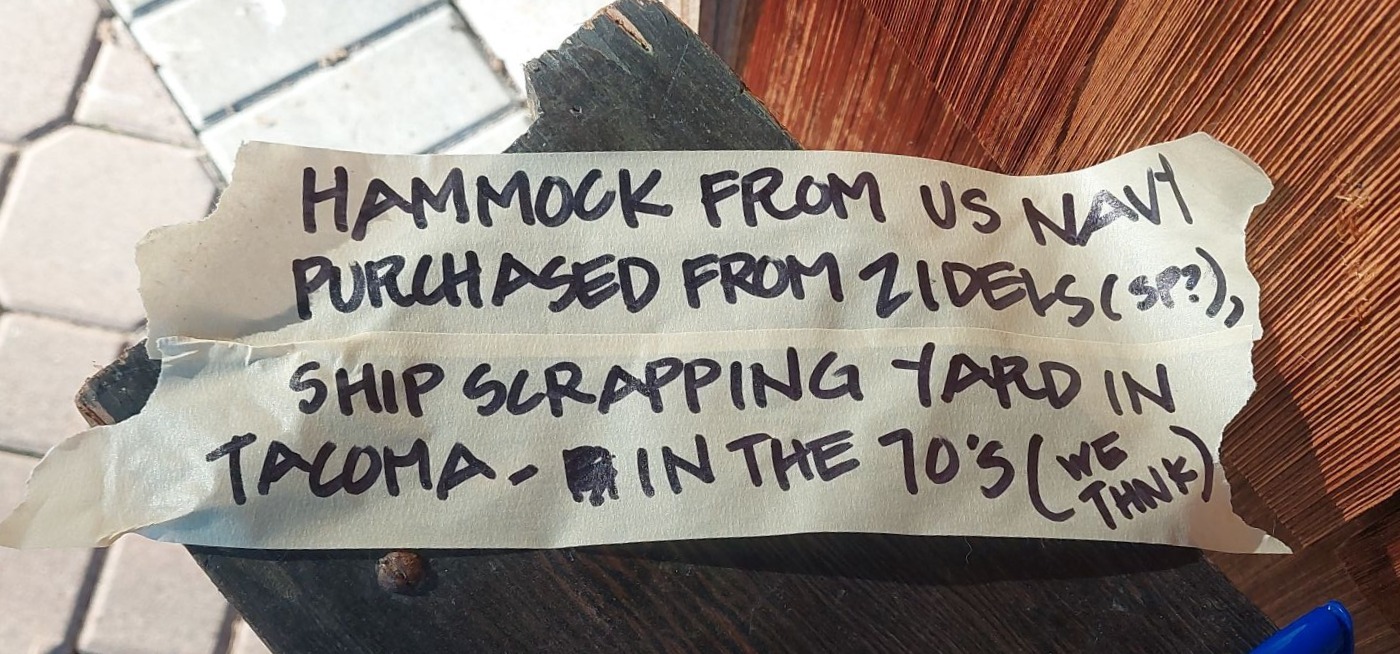 HAMMOCK FROM US NAVY
PURCHASED FROM ZIDELS (SP?),
SHIP SCRAPPING YARD IN
TACOMA - IN THE 70'S (WE THNK)